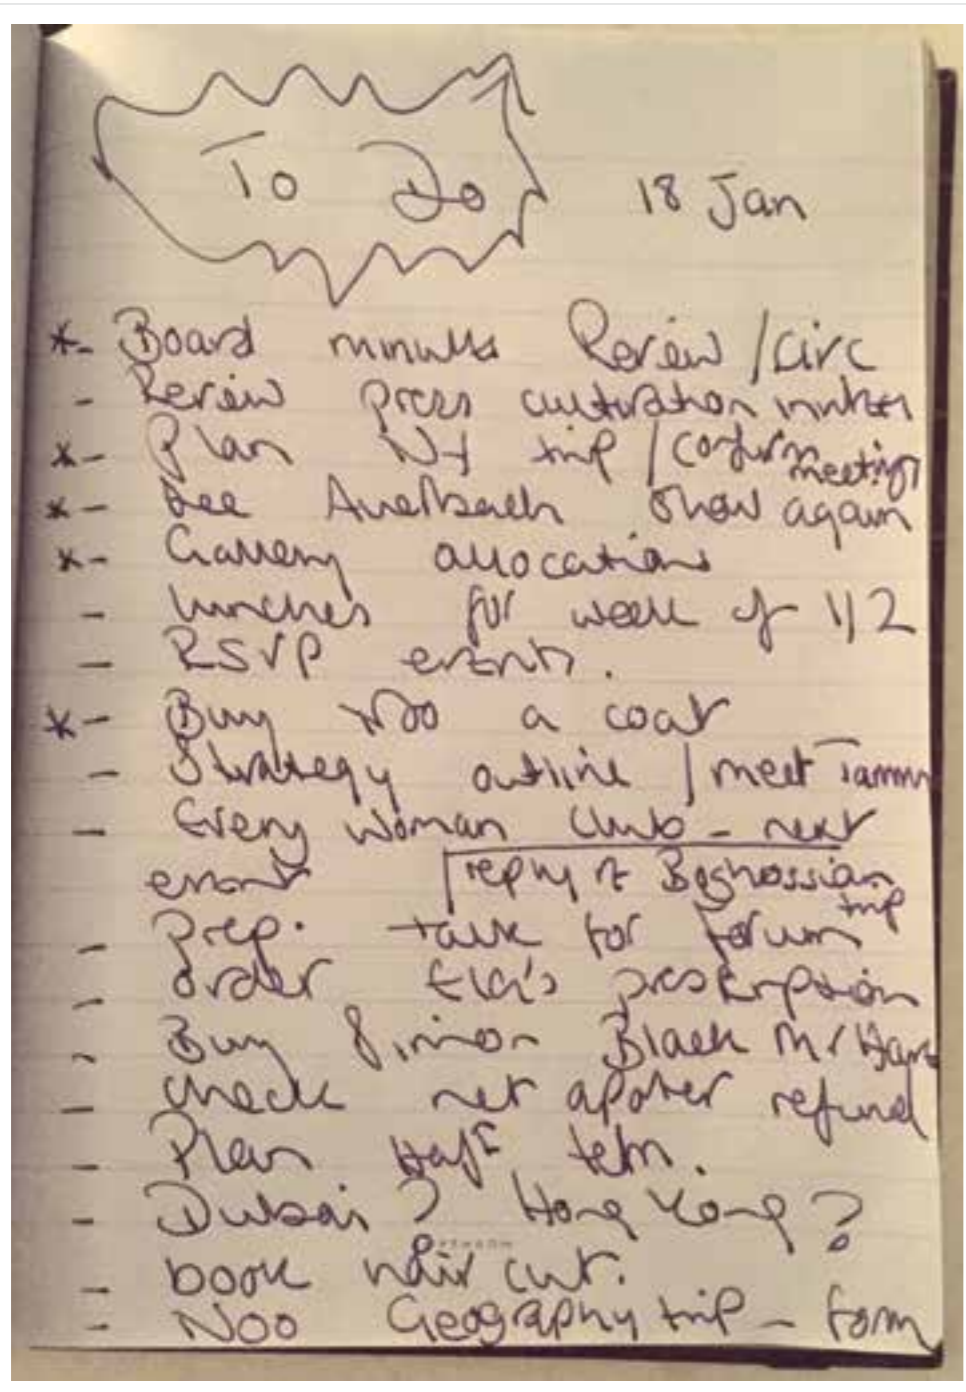 To Do
18 Jan
*- Board minutes Review / circ
- Review press cultivation
*- Plan NY trip / confirm meetings
*- See Auerbach show again
*- Gallery allocations
- lunches for week of 1/2
- RSVP events.
*- Buy Noo a coat
- Strategy outline / meet Tamm
- Every Woman Club - next
event reply to Boghossian trip
- Prep. talk for forum
- order Ela's prescription
- Buy Simon Black Mr Hare
- check net aporter refund
- Plan half term.
- Dubai? Hong Kong?
- book hair cut.
- Noo Geography trip - form